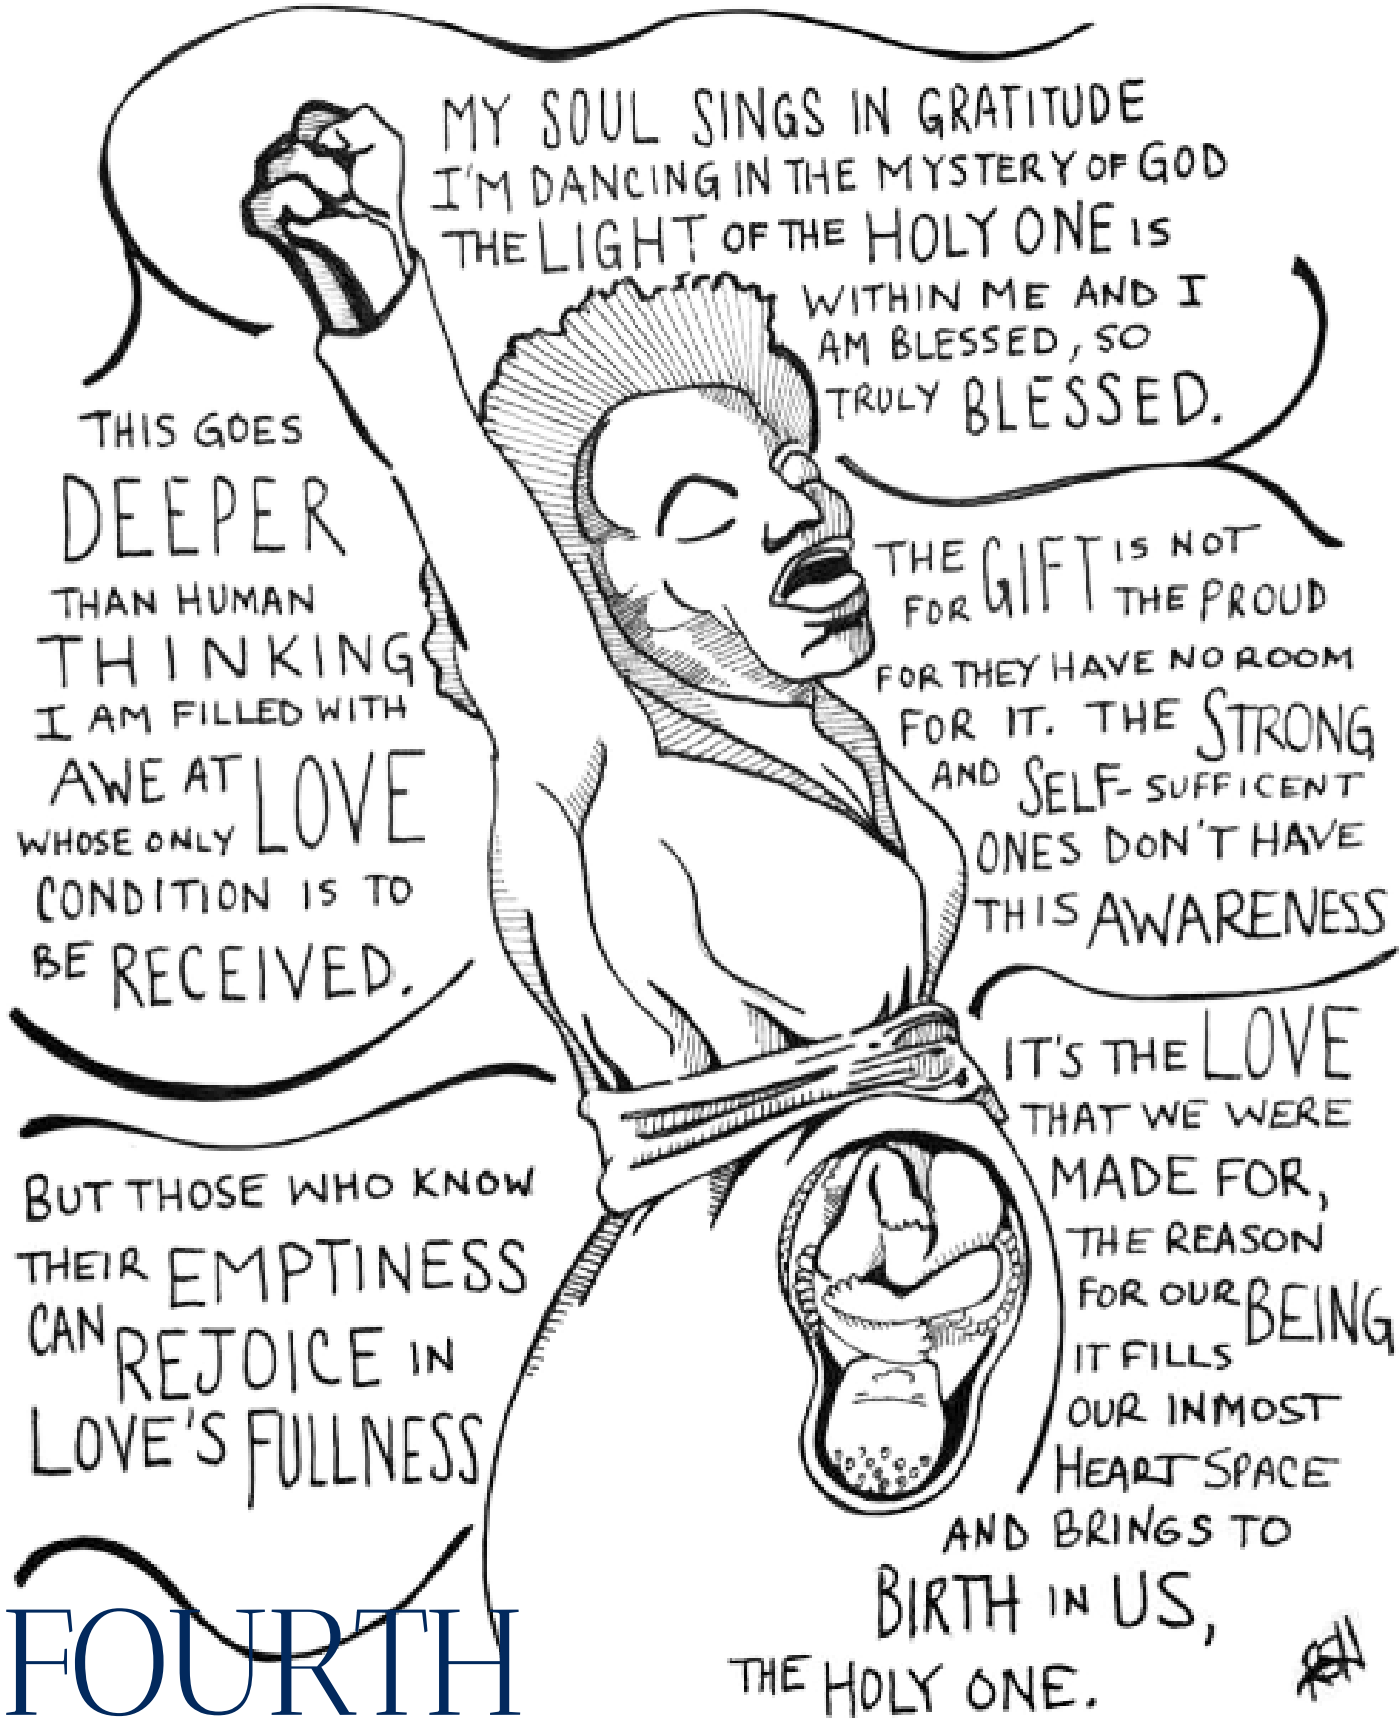 MY SOUL SINGS IN GRATITUDE
I'M DANCING IN THE MYSTERY OF GOD
THE LIGHT OF THE HOLY ONE IS
WITHIN ME AND I
AM BLESSED, SO
TRULY BLESSED.
THIS GOES
DEEPER
THAN HUMAN
THINKING
I AM FILLED WITH
AWE AT LOVE
WHOSE ONLY
CONDITION IS TO
BE RECEIVED.
THE GIFT IS NOT
FOR THE PROUD
FOR THEY HAVE NO ROOM
FOR IT. THE STRONG
AND SELF-SUFFICENT
ONES DON'T HAVE
THIS AWARENESS
BUT THOSE WHO KNOW
THEIR EMPTINESS
CAN REJOICE IN
LOVE'S FULLNESS
IT'S THE LOVE
THAT WE WERE
MADE FOR,
THE REASON
FOR OUR BEING
IT FILLS
OUR INMOST
HEART SPACE
AND BRINGS TO
BIRTH IN US,
THE HOLY ONE.
FOURTH